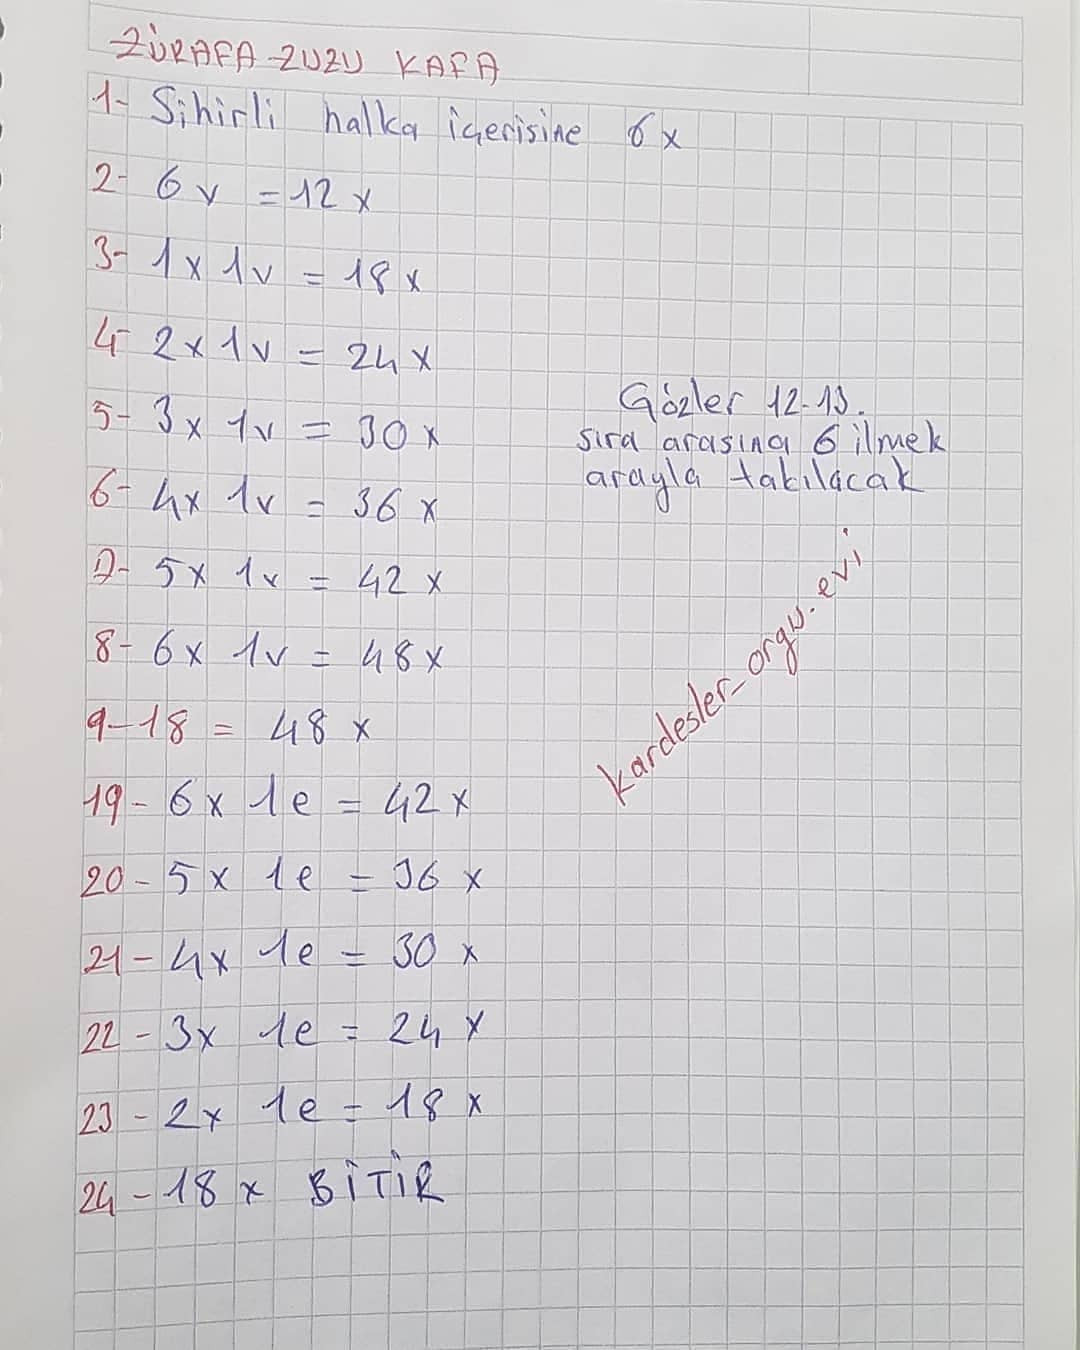 ZÜRAFA ZUZU KAFA
1- Sihirli halka içerisine 6x
2- 6v = 12x
3- 1x 1v = 18x
4- 2x 1v = 24x
5- 3x 1v = 30x
6- 4x 1v = 36x
7- 5x 1v = 42x
8- 6x 1v = 48x
9-18 = 48x
19- 6x 1e = 42x
20- 5x 1e = 36x
21- 4x 1e = 30x
22- 3x 1e = 24x
23- 2x 1e = 18x
24- 18x BİTİR
Gözler 12-13.
sıra arasına 6 ilmek
arayla takılacak
kardesler_orgu.evi